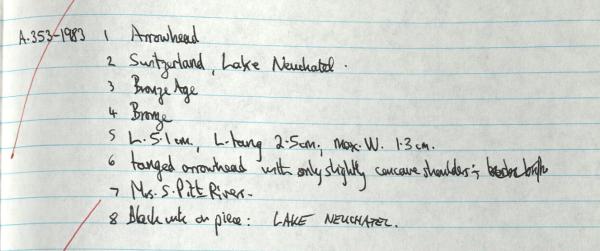 A.353-1983 1 Arrowhead
2 Switzerland, Lake Neuchatel.
3 Bronze Age
4 Bronze
5 L. 5.1cm, L. tang 2.5cm; max. W. 1.3cm.
6 tanged arrowhead with only slightly concave shoulders;
7 Mrs. S. Pitt Rivers.
8 Black ink on piece: LAKE NEUCHATEL.